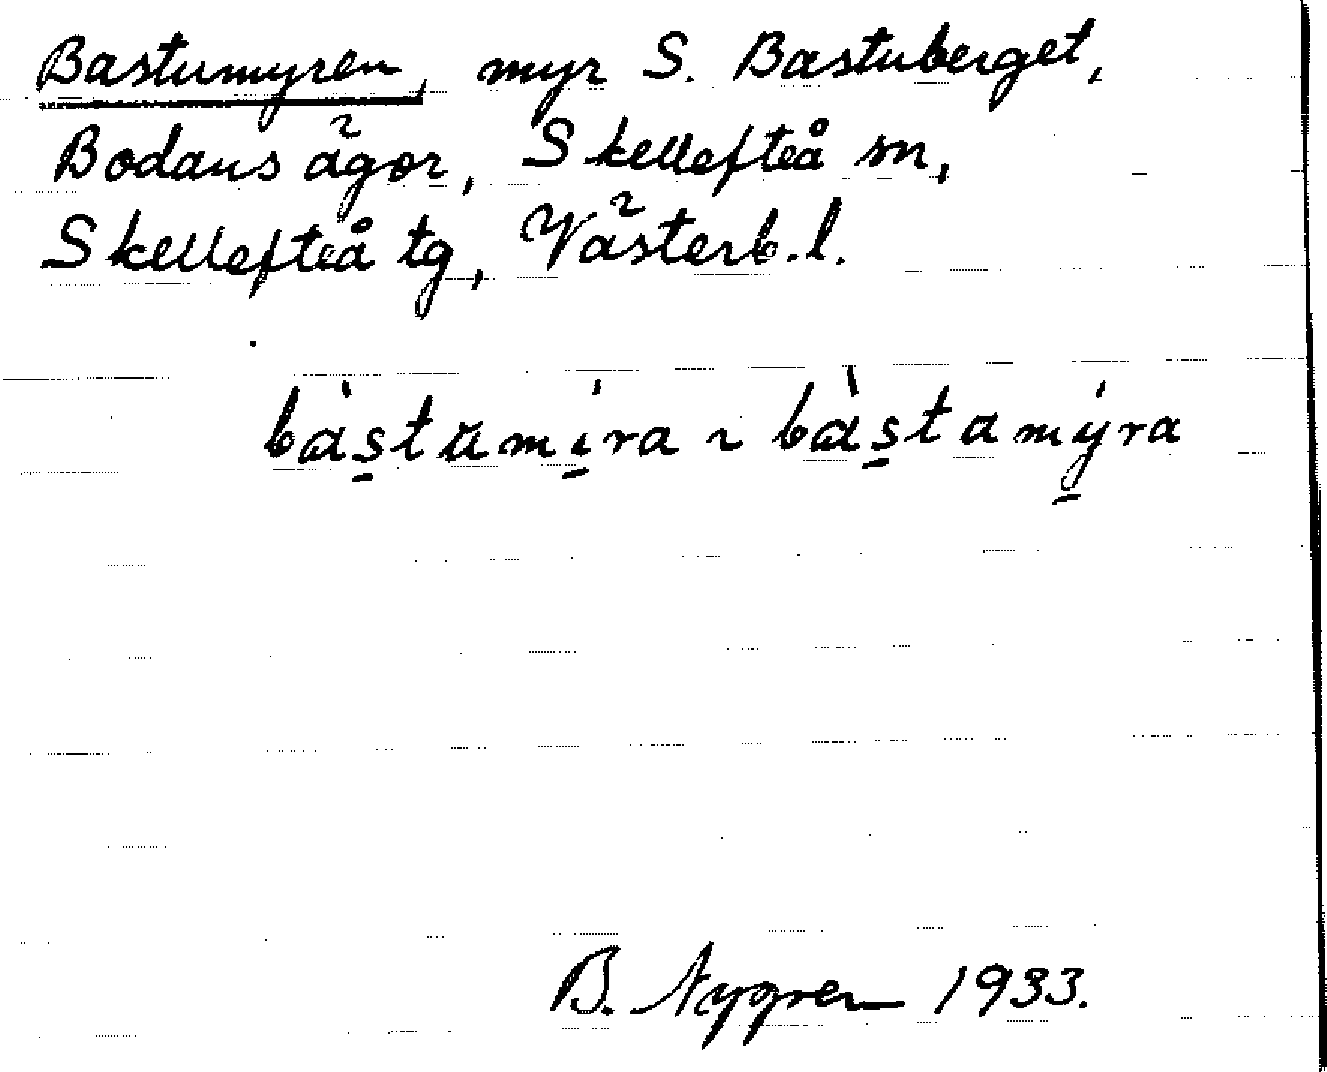 Bastumyren, myr S. Bastuberget,
Bodans ägor, Skellefteå sn,
Skellefteå tg, Västerb.l.
bàs̱tamı̱́ra ~ bàs̱tamý̱ra
B. Nygren 1933.